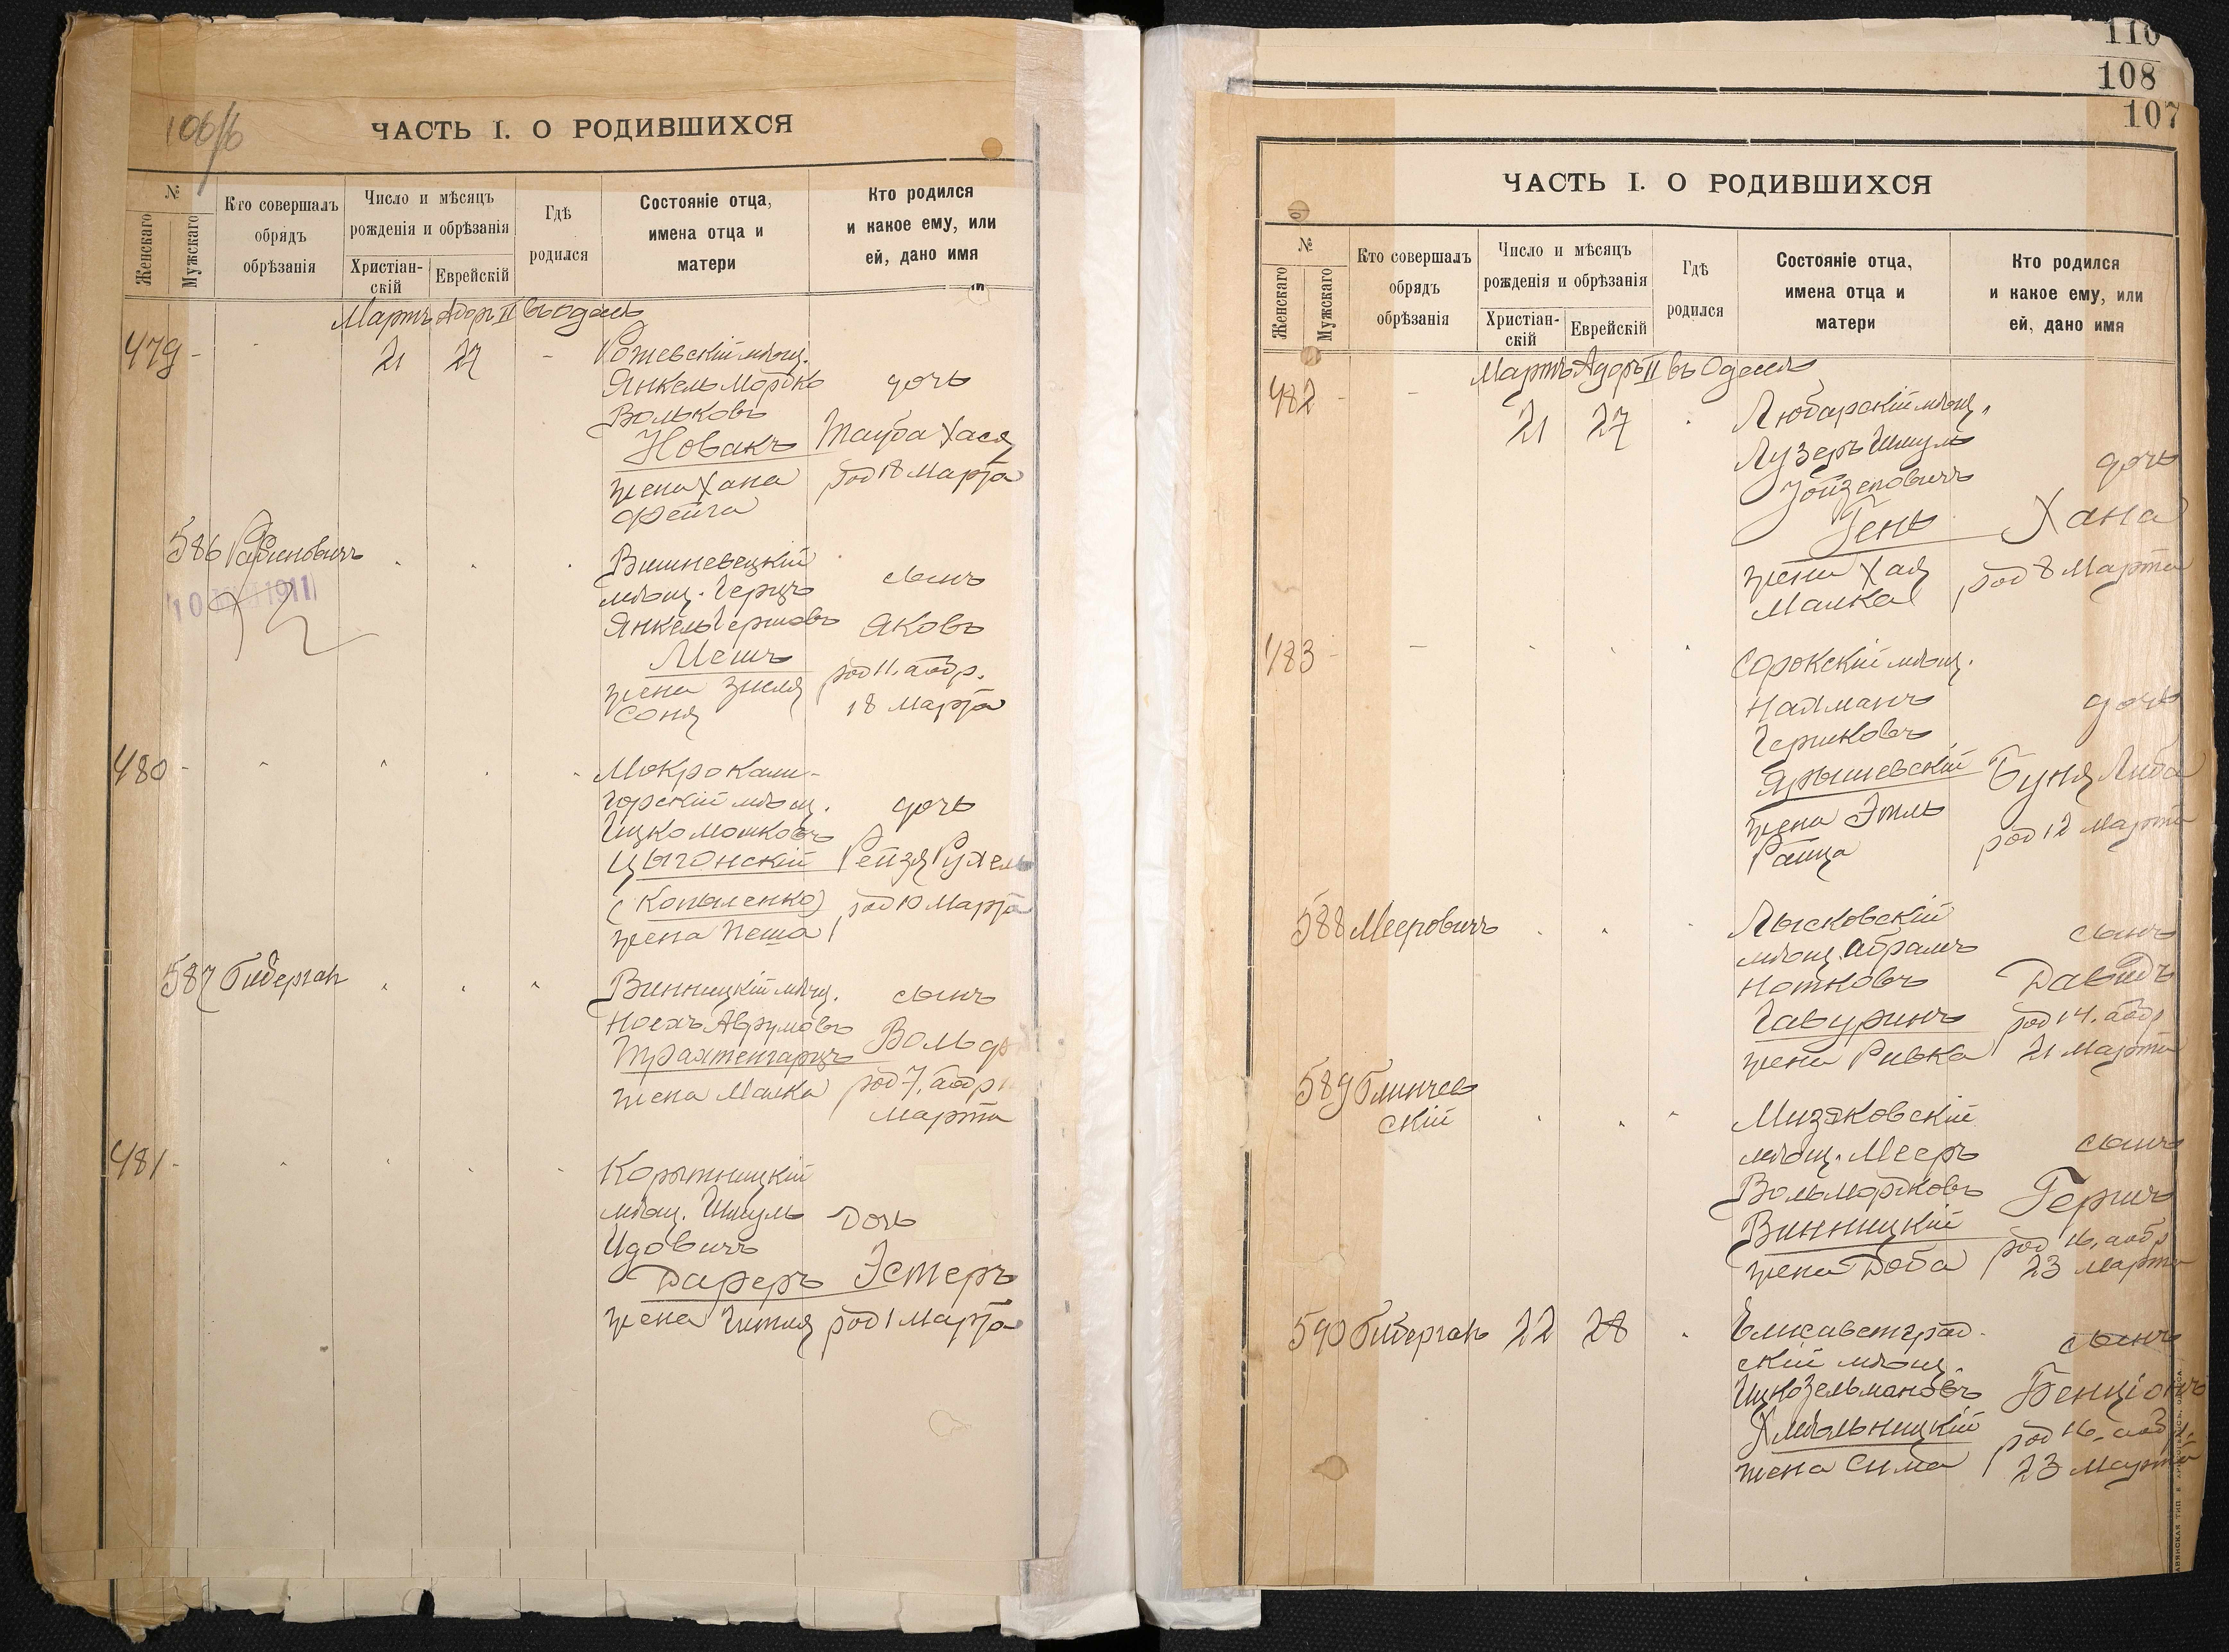 106/б
ЧАСТЬ I. О РОДИВШИХСЯ
№
Женскаго
Мужскаго
Кто совершалъ
обрядъ
обрѣзанія
Число и мѣсяцъ
рожденія и обрѣзанія
Христіан-
скій
Еврейскій
Гдѣ
родился
Состояніе отца,
имена отца и
матери
Кто родился
и какое ему, или
ей, дано имя
Мартъ Адоръ II въ Одессѣ
479 - - 21 27 - мѣщ.
Янкель Мордко дочь
Вольковъ
Новакъ Тауба Хася
жена Хана род 18 Марта
Фейга
586 Рабиновичъ Вишневецкій
мѣщ. Герцъ сынъ
10 1911
Янкель Гершовъ Яковъ
Мешъ
жена Зисля род 11, аобр.
Соня 18 Марта
480 - Мокрокали-
горскій мѣщ. дочь
Ицко Мошковъ
Цыгонскій Рейзя Рухель
(Копыленко) род 10 Марта
жена Пеша
587 Гиберган Винницкій мѣщ. сынъ
Носхъ Аврумовъ
Трахтенгарцъ
жена Малка род 7, аобр
Марта
481 - Корытницкій
мѣщ. Шмуль Дочь
Идовичъ
Дареръ Эстеръ
жена Гитля род 1 Марта
110
108
107
ЧАСТЬ I. О РОДИВШИХСЯ
№
Женскаго
Мужскаго
Кто совершалъ
обрядъ
обрѣзанія
Число и мѣсяцъ
рожденія и обрѣзанія
Христіан-
скій
Еврейскій
Гдѣ
родился
Состояніе отца,
имена отца и
матери
Кто родился
и какое ему, или
ей, дано имя
Мартъ Адоръ II въ Одессѣ
482 - - 21 27 Любарскій мѣщ.
Лузеръ Шмуль
дочь
Гень Хана
жена Хая род 8 Марта
Малка
483 - - Сорокскій мѣщ.
Нахманъ дочь
Гершковъ
Ярышевскій Буня Либа
жена Этль род 12 Марта
Раица
588 Мееровичъ Лысковскій
мѣщ. Абрамъ сынъ
Нотковъ Давидъ
Гавуринъ род 14, аобр
жена Ривка 21 Марта
589 Глинчев
скій Мизяковскій
мѣщ. Мееръ сынъ
Вольмордковъ Гершъ
Винницкій род 16, аобр
жена Доба 23 Марта
590 Гиберган 22 28 Елисаветград-
скій мѣщ. сынъ
Ицко Зельмановъ Бенціонъ
Хмѣльницкій род 16, аобр.
жена Сима 23 Марта